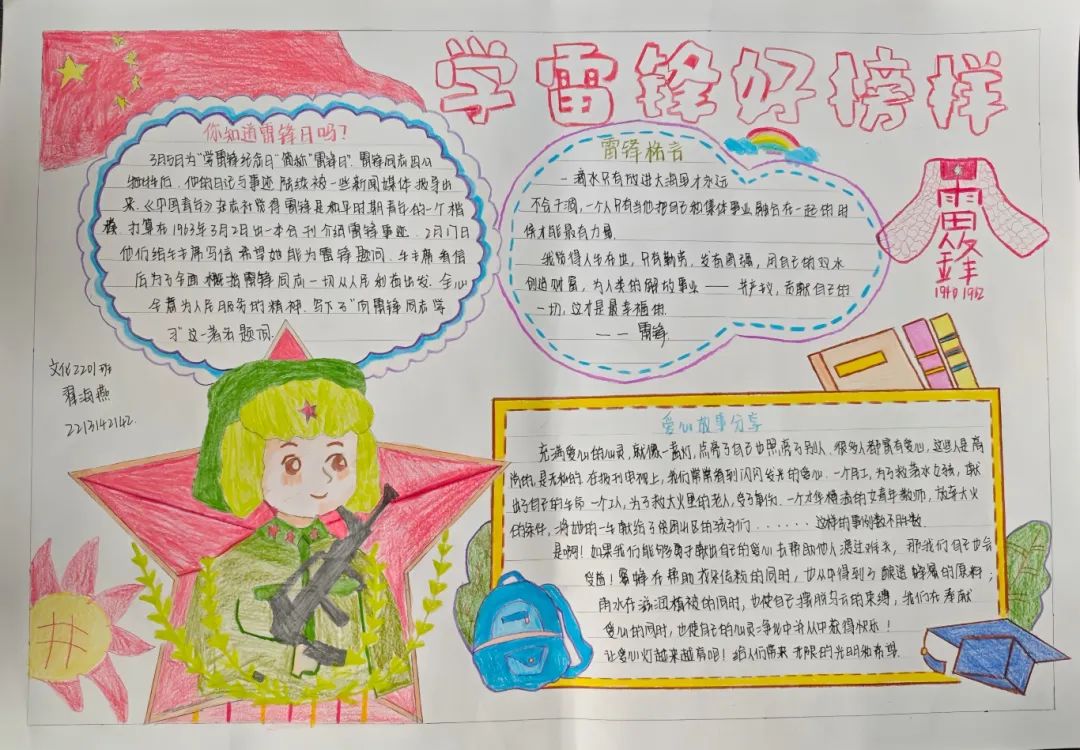 学雷锋好榜样
你知道雷锋日吗？
3月5日为“学雷锋纪念日”简称“雷锋日”. 雷锋同志因公
牺牲后. 他的日记与事迹 陆续被一些新闻媒体 报导出
来.《中国青年》杂志社觉得 雷锋是和平时期青年的一个楷
打算在1963年3月2日出一本合刊介绍雷锋事迹. 2月
他们给毛主席写信 希望她能为雷锋题词. 毛主席看信
后为了全面 概括雷锋同志一切从人民利益出发. 全心
全意为人民服务的精神. 写下了“向雷锋同志学
习”这一著名题词.
雷锋格言
一滴水只有放进大海里才永远
不会干涸, 一个人只有当他把自己和集体事业融合在一起的时
候才能最有力量.
我觉得人生在世, 只有勤劳, 发奋图强, 用自己的双水
创造财富, 为人类的解放事业 —— 共产主义, 贡献自己的
一切, 这才是最幸福的.
—— 雷锋
雷锋
1940 1962
文化2201班
海燕
2213142142.
爱心故事分享
充满爱心的心灵, 就像一盏灯, 点亮了自己也照亮了别人. 很多人都富有爱心, 这些人是高
尚的, 是无私的. 在报刊电视上, 我们常常看到闪闪发光的爱心. 一个民工, 为了救落水女孩, 献
出了自己的生命. 一个工人, 为了救大火里的老人, 受了重伤. 一个才华横溢的女青年教师, 放弃大
的条件, 将她的一生献给了贫困山区的孩子们 . . . . . . 这样的事例数不胜数.
是啊! 如果我们能够勇于献出自己的爱心去帮助他人渡过难关, 那我们自己也会
受益! 蜜蜂在帮助花朵传粉的同时, 也从中得到了酿造蜂蜜的原料;
雨水在滋润植被的同时, 也使自己摆脱乌云的束缚, 我们在奉献
爱心的同时, 也使自己的心灵净化中并从中获得快乐!
让爱心灯越来越亮吧! 给人们带来 无限的光明和希望.